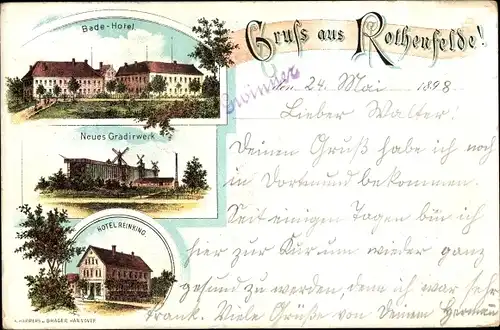 Bade-Hotel.
Gruss aus Rothenfelde!
den 24. Mai 1898
Lieber Walter!
Neues Gradirwerk
Deinen Gruß habe ich noch
in Dortmund bekommen.
Seit einigen Tagen bin ich
HOTEL REINKING.
hier zur Kur um wieder ganz
gesund zu werden, denn ich war sehr
krank. Viele Grüße von Deinem Hermann
HANNOVER